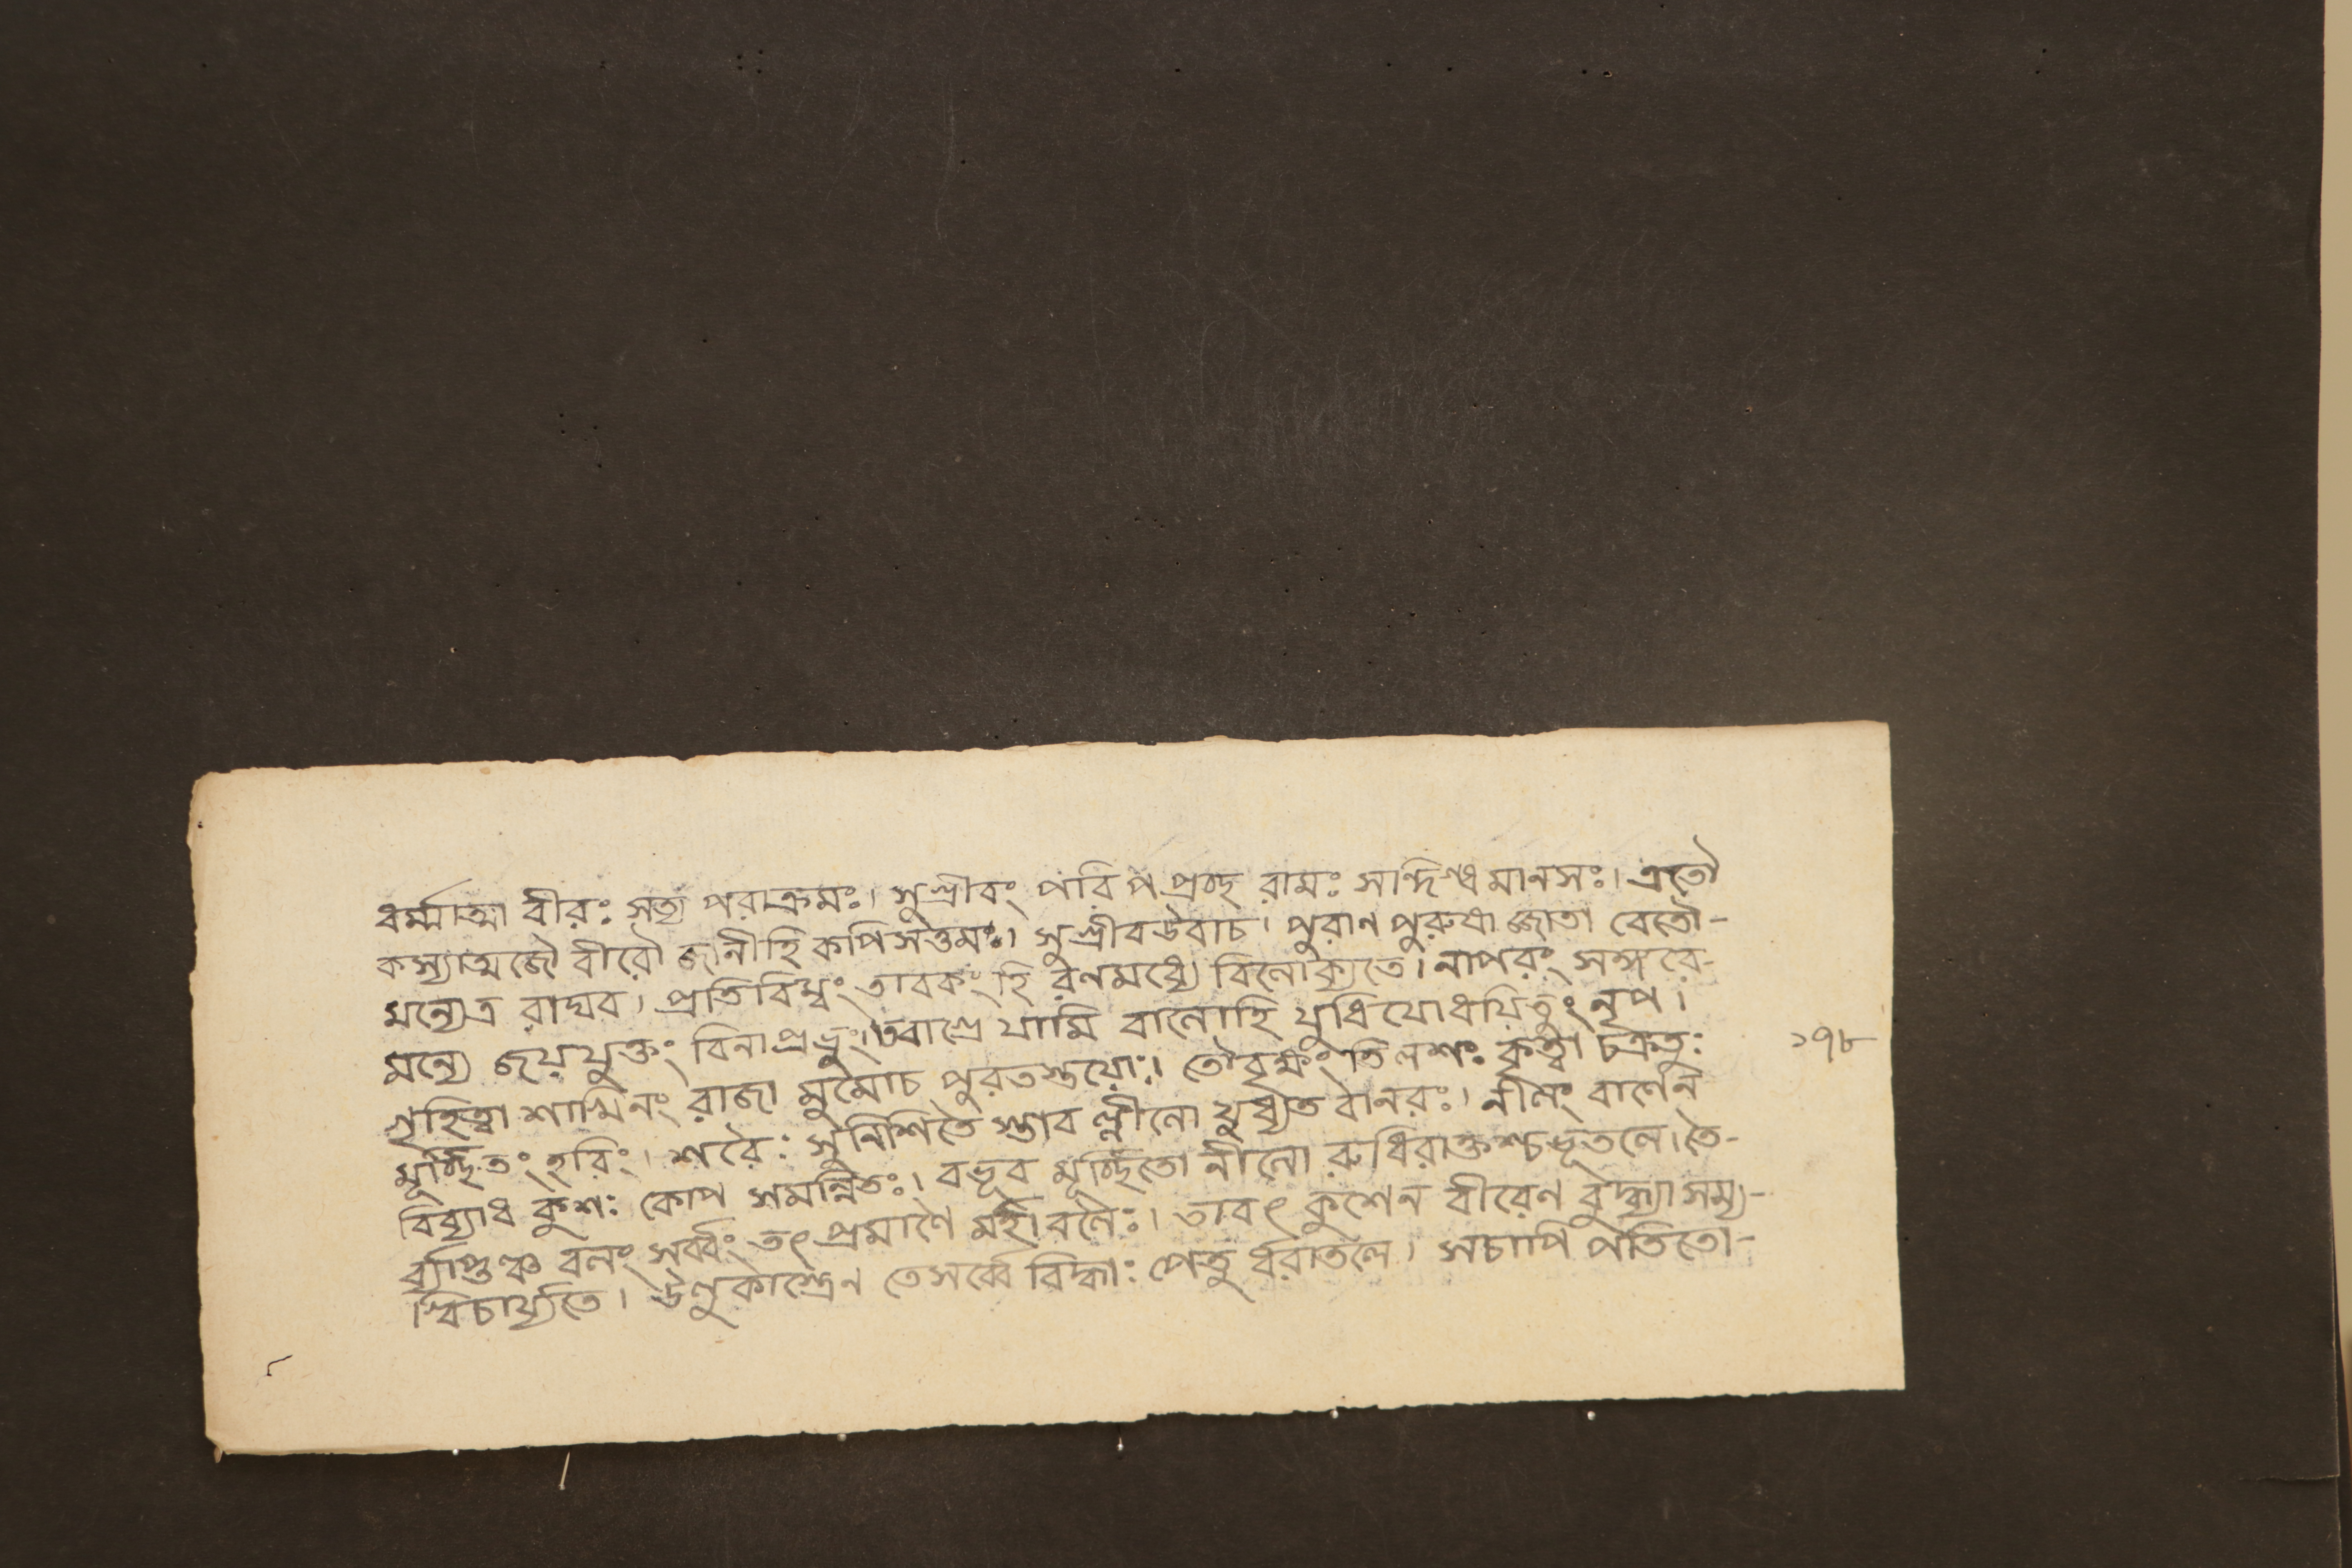 ধর্ম্মাত্মা বীরঃ সত্য পরাক্রমঃ। সুগ্রীবং পরি পপ্রচ্ছ রামঃ সান্দিগ্ধ মানসঃ। এতৌ
কস্যাত্মজৌ বীরৌ জানীহি কপিসত্তমঃ। সুগ্রীবউবাচ। পুরান পুরুষা জ্জাতা বেতৌ-
মন্যেত্র রাঘব। প্রতিবিম্বং তাবকং হি রনমধ্যে বিনোক্যতে। নাপরং সঙ্গরে-
মন্যে জয়যুক্তং বিনাপ্রভুং। তবাগ্রে যামি বানোহি যুধিযোধযিতুং নৃপ।
গৃহিত্বা শাখিনং রাজা মুমোচ পুরতস্তযোঃ। তৌবৃক্ষং তিলশঃ কৃত্বা চক্রতুঃ
মূর্চ্ছিতং হরিং। শরৈঃ সুনিশিতৈ স্তাব ন্নীনো যুধ্যত বানরঃ। নীলং বাণেন
বিব্যাধ কুশঃ কোপ সমন্নিতঃ। বভূব মূর্চ্ছিতো নীনো রুধিরাক্তশ্চভূতলে। তৈ-
ব্যাপ্তঞ্চ বলং সর্ব্বং তৎ প্রমাণৈ র্মহাবলৈঃ। তাবৎ কুশেন বীরেণ বুদ্ধ্যা সম্য-
গ্বিচার্য্যতে। উণুকাস্ত্রেন তেসর্ব্বে বিদ্ধাঃ পেতু র্ধরাতলে। সচাপি পতিতো-
১৭৮